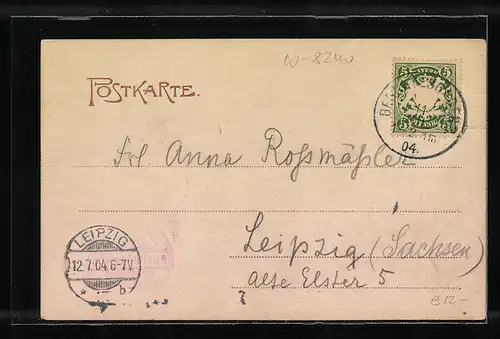 W-8240
POSTKARTE.
5 BAYERN 5
5 PFENNIG 5
04.
Frl Anna Roßmäßler
Leipzig (Sachsen)
alte Elster 5
LEIPZIG
12.7.04.6-7V.
€12-